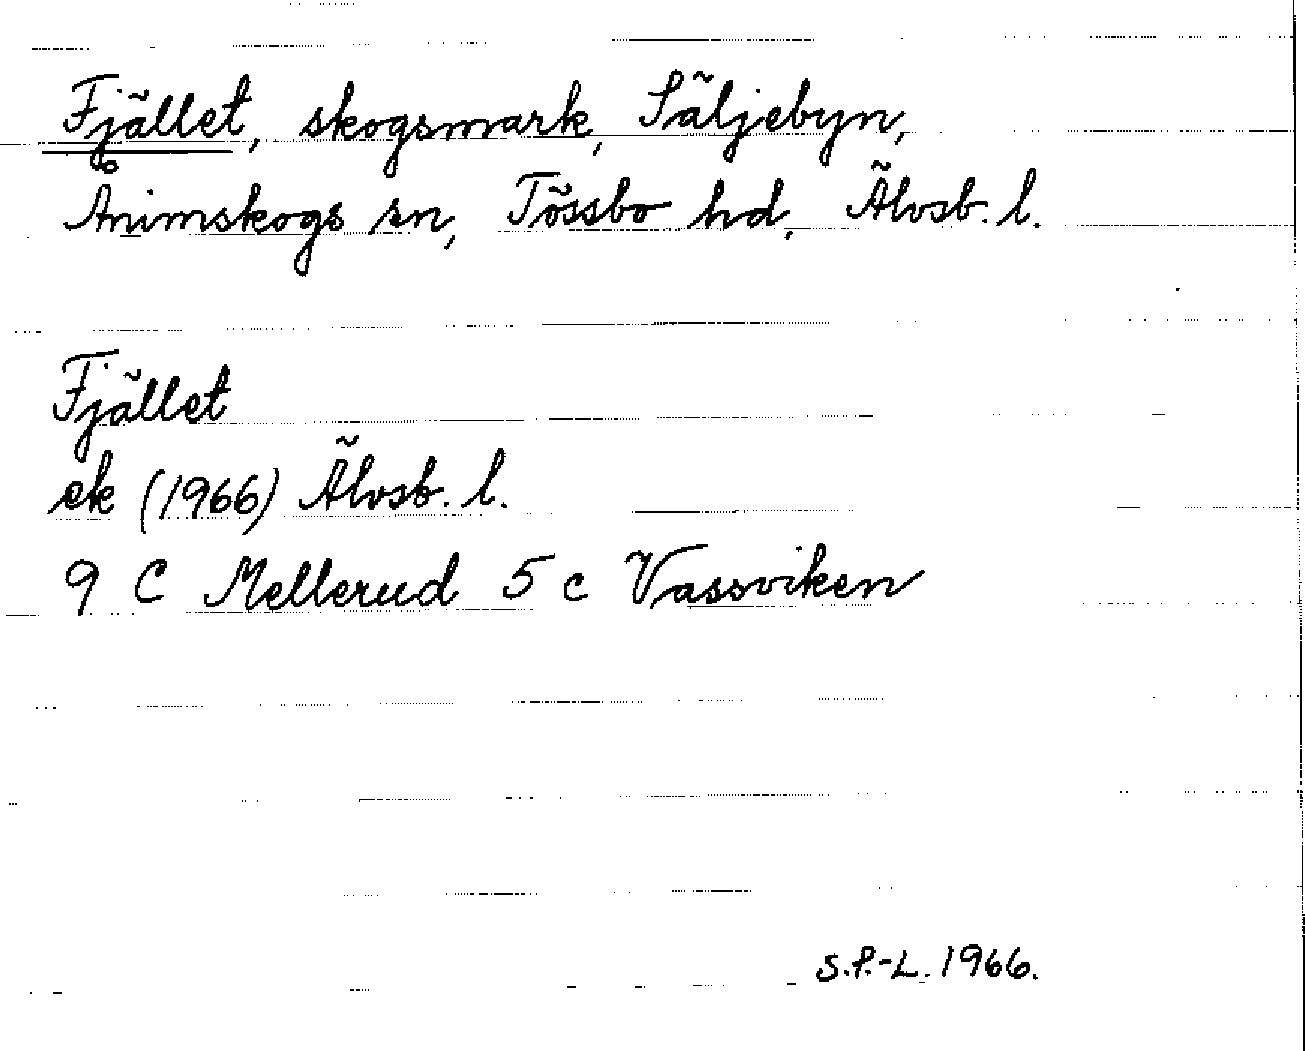 Fjället, skogsmark, Säljebyn,
Ånimskogs sn, Tössbo hd, Älvsb. l.
Fjället
ek (1966) Älvsb. l.
9 C Mellerud 5 c Vassviken
S.P.-L. 1966.